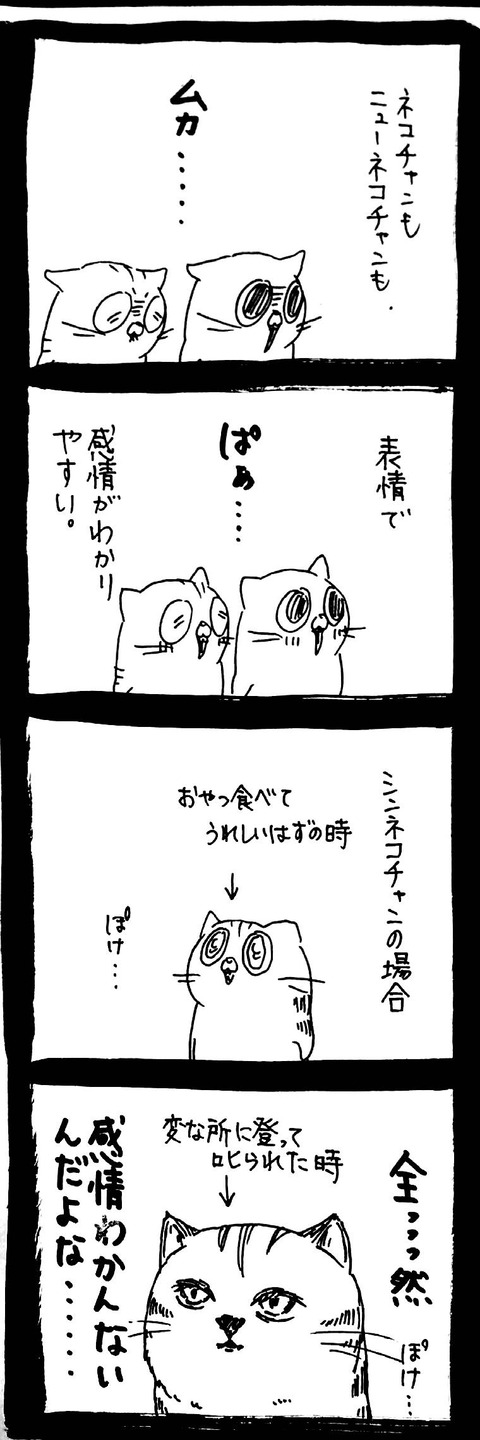 ネコチャンも
ニューネコチャンも.
ムカ......
表情で
ぱぁ....
感情がわかり
やすい。
シンネコチャンの場合
おやつ食べて
うれしいはずの時
↓
ぽけ...
全っっっ然
変な所に登って
叱られた時
↓
ぽけ...
感情わかんない
んだよな......